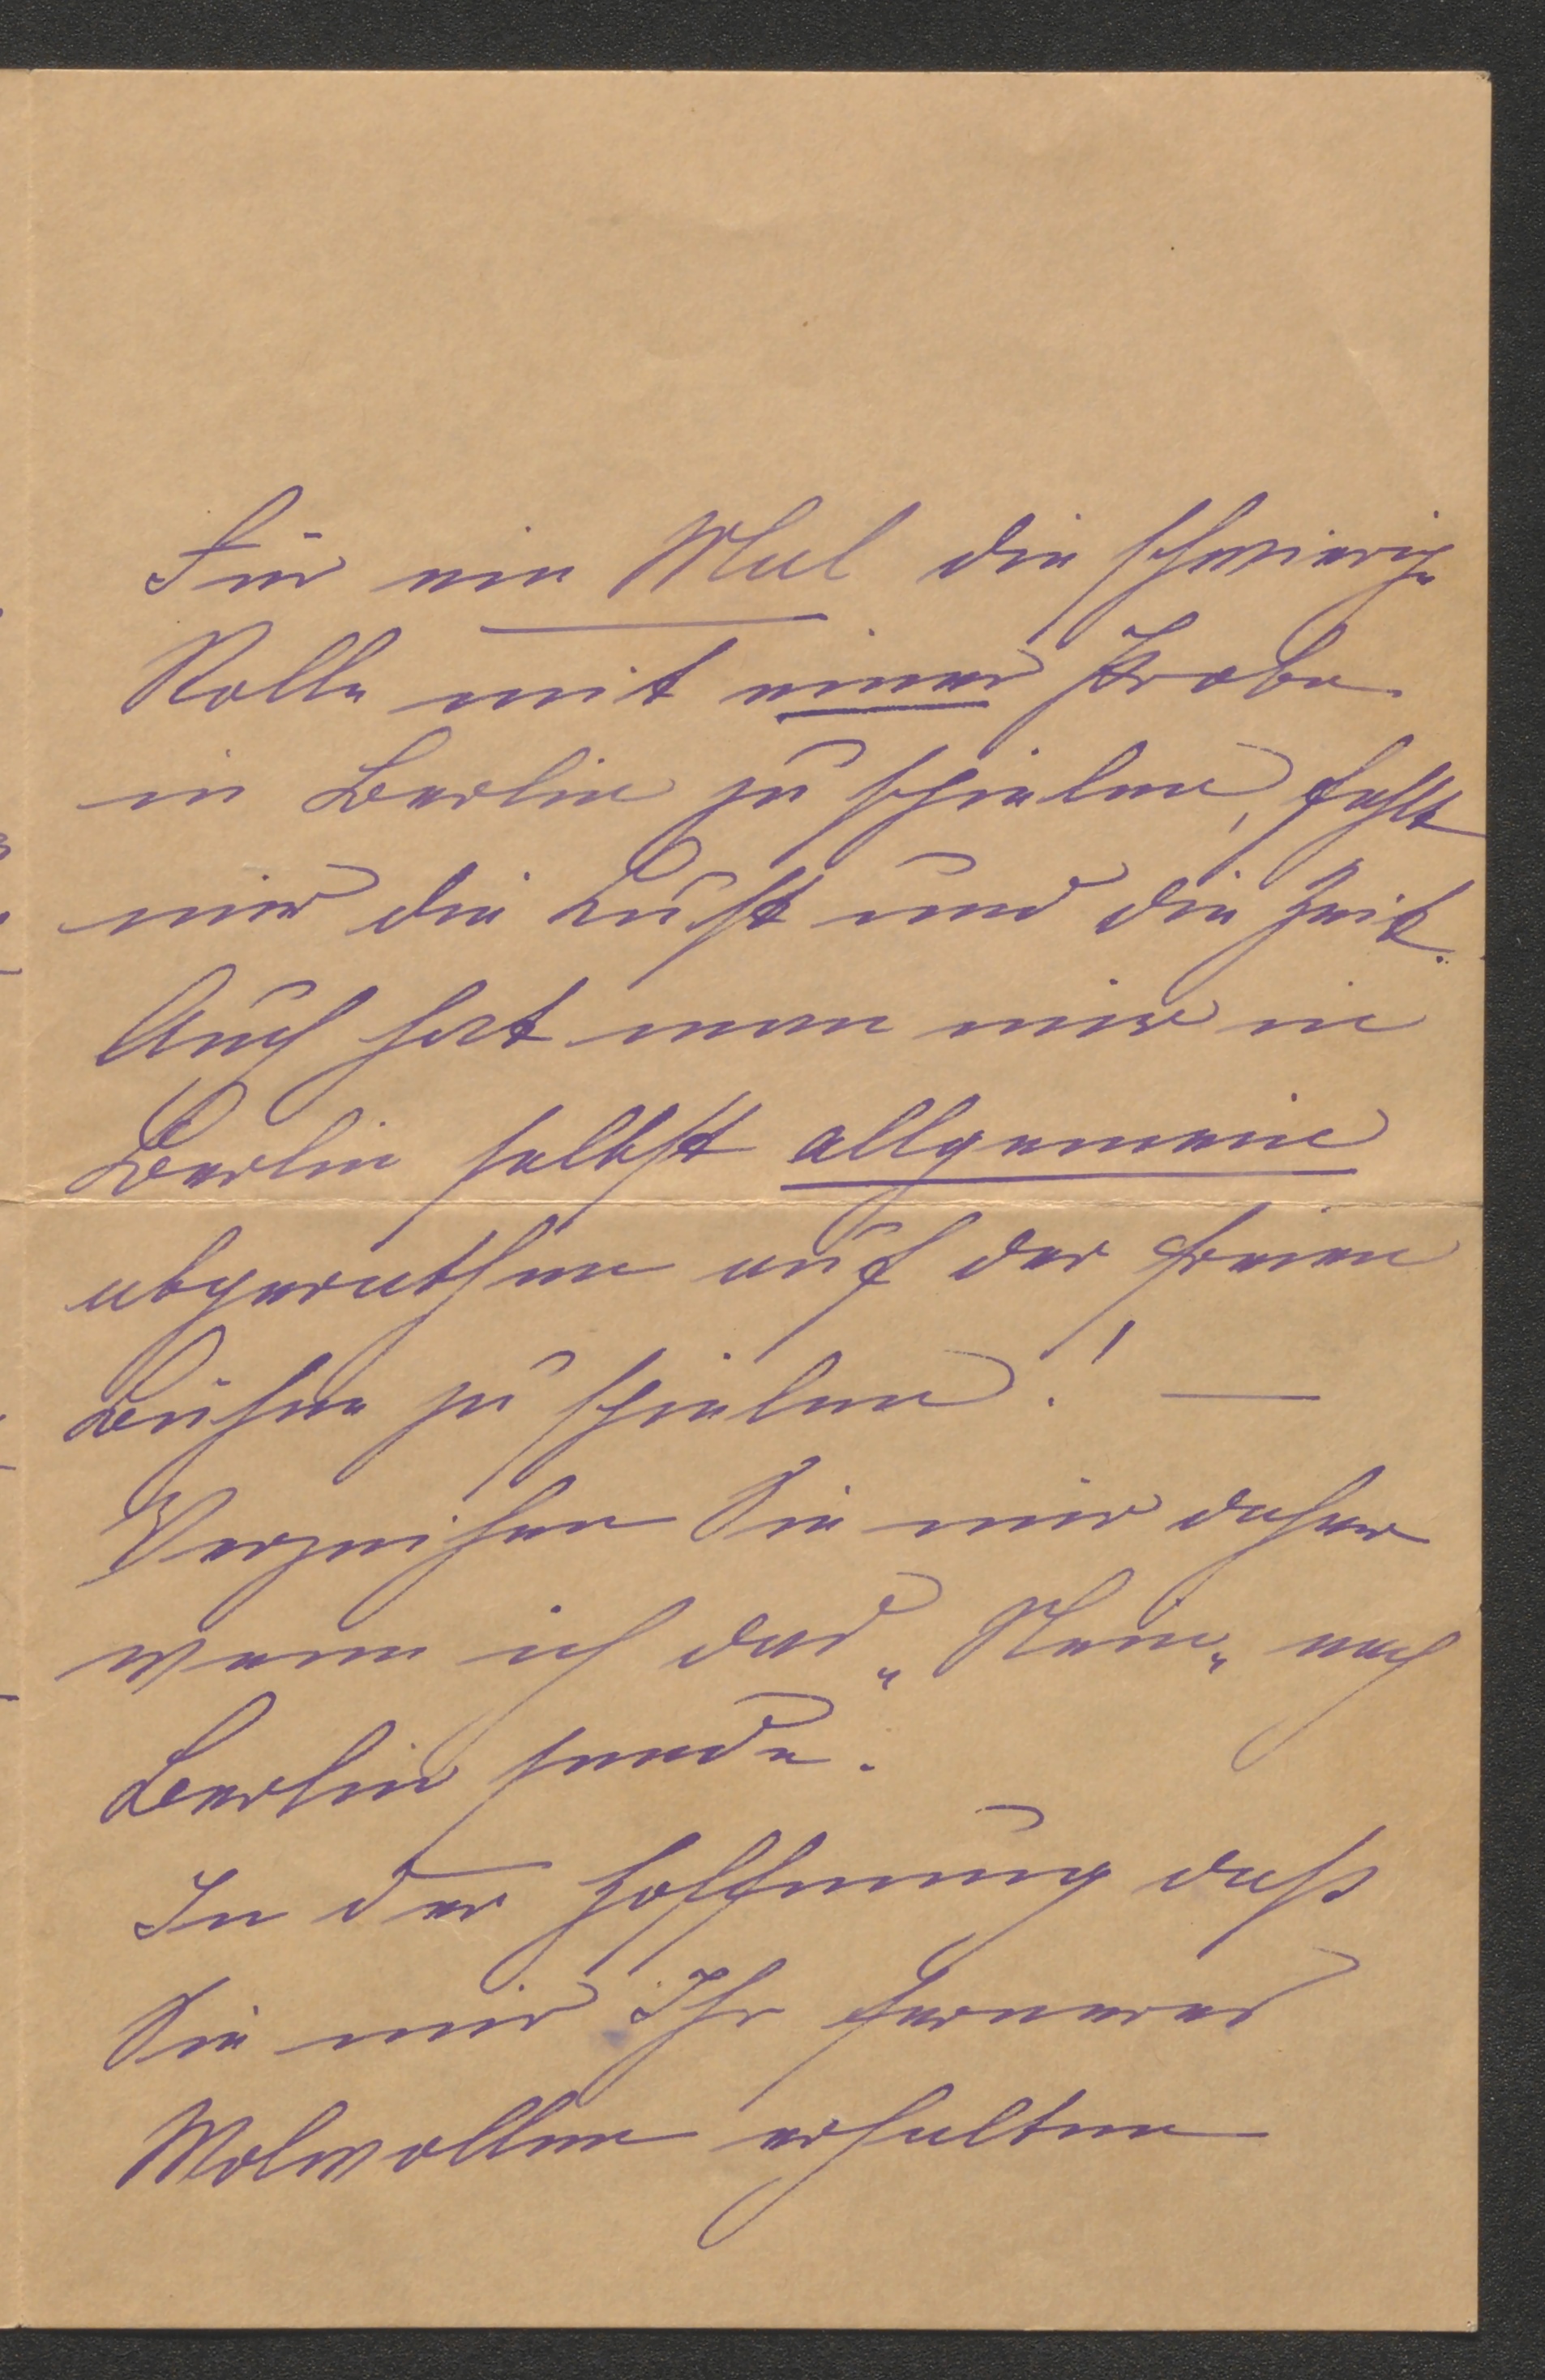 Für ein Mal die schwierige
Rolle mit einer Probe
in Berlin zu spielen, fehlt
mir die Lust und die Zeit.
Auch hat man mir in
Berlin selbst allgemein
abgerathen auf der freien
Bühne zu spielen! —
Verzeihen Sie mir daher
wenn ich das „Nein„ nach
Berlin sende.
In der Hoffnung daß
Sie mir Ihr ferneres
Wolwollen erhalten